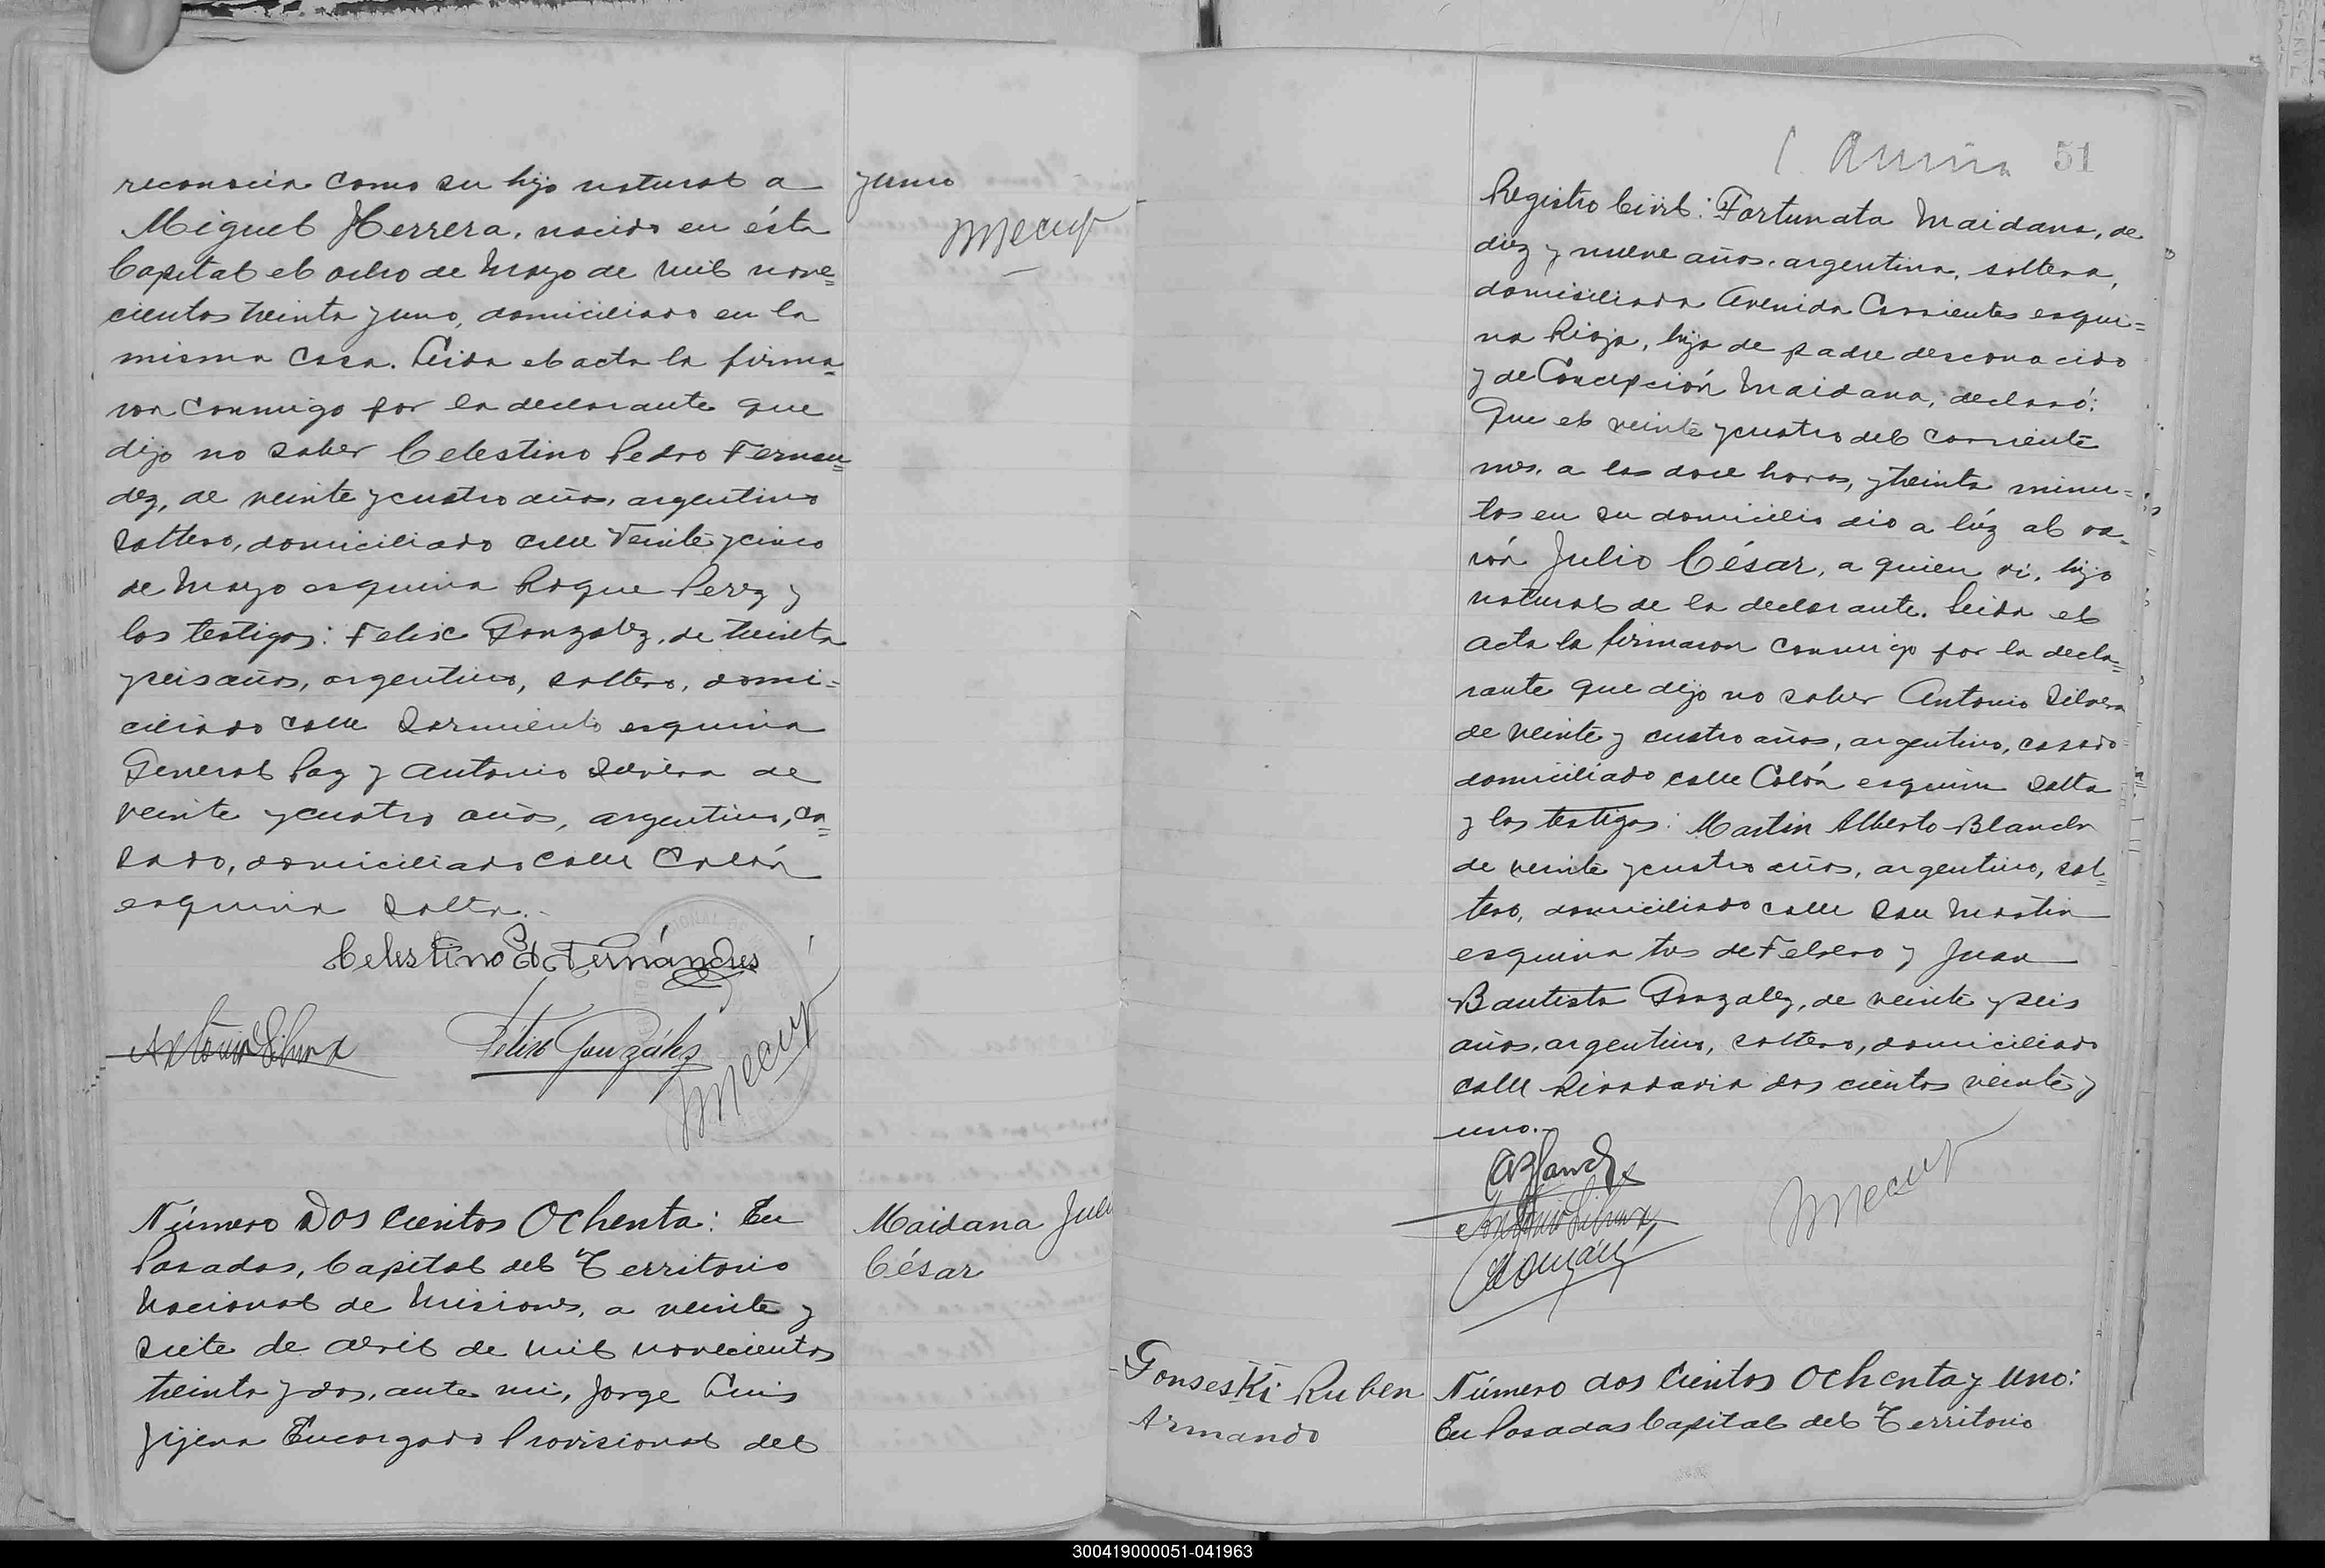 reconocía como su hijo natural a
Miguel Herrera, nacido en ésta
Capital el ocho de Mayo de mil nove=
cientos treinta y uno, domiciliado en la
misma casa. Leida el acta la firma=
ron conmigo por la declarante que
dijo no saber Celestino Pedro Fernan=
dez, de veinte y cuatro años, argentino
soltero, domiciliado calle Veinte y cinco
de Mayo esquina Roque Perez y
los testigos: Felix Gonzalez, de treinta
y seis años, argentino, soltero, domi=
ciliado calle Sarmiento esquina
General Paz y Antonio Silvera de
veinte y cuatro años, argentino, ca=
sado, domiciliado calle Colón
esquina Salta.-
Celestino P. Fernández
Antonio Silvera
Felix González
Número Dos cientos Ochenta: En
Posadas, Capital del Territorio
Nacional de Misiones, a veinte y
siete de abril de mil novecientos
treinta y dos, ante mi, Jorge Luis
Jijena Encargado Provisional del
y uno
Maidana Juli
César
51
Registro Civil: Fortunata Maidana, de
diez y nueve años, argentina, soltera,
domiciliada Avenida Corrientes esqui=
na Rioja, hija de padre desconocido
y de Concepción Maidana, declaró:
Que el veinte y cuatro del corriente
mes, a las doce horas, y treinta minu=
tos en su domicilio dio a lúz al va=
rón Julio César, a quien vi, hijo
natural de la declarante. Leida el
acta la firmaron conmigo por la decla=
rante que dijo no saber Antonio Silvera
de veinte y cuatro años, argentino, casado
domiciliado calle Colón esquina Salta
y los testigos: Martin Alberto Blanch
de veinte y cuatro años, argentino, sol=
tero, domiciliado calle San Martin
esquina tres de Febrero y Juan
Bautista Gonzalez, de veinte y seis
años, argentino, soltero, domiciliado
calle Rivadavia dos cientos veinte y
uno.-
Antonio Silvera
Gonseski Ruben
Armando
Número dos cientos Ochenta y Uno:
En Posadas Capital del Territorio
300419000051-041963